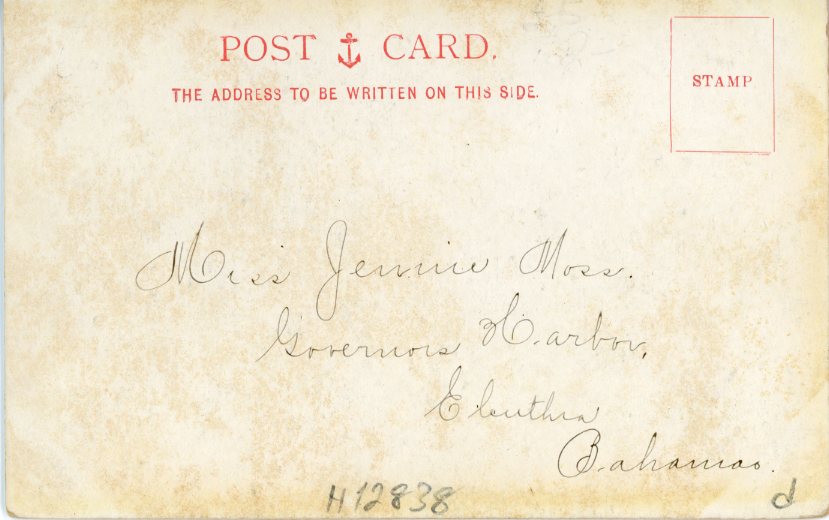 POST CARD.
THE ADDRESS TO BE WRITTEN ON THIS SIDE.
STAMP
Miss Jennie Moss.
Governors Harbor,
Eleuthra
Bahamas.
H12838
d